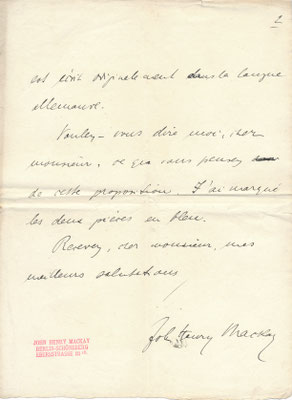 2
est écrit originalement dans la langue
allemande.
Voulez-vous dire moi, cher
monsieur, ce que vous pensez
de cette proposition. J'ai marqué
les deux pièces en bleu.
Recevez, cher monsieur, mes
meilleurs salutations
!
John Henry Mackay
JOHN HENRY MACKAY
BERLIN-SCHÖNEBERG